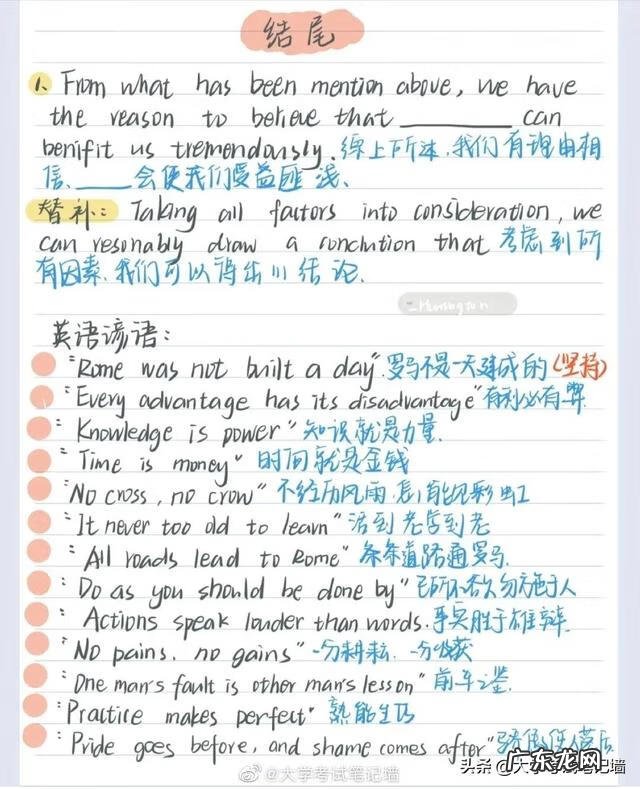 结尾
1. From what has been mention above, we have
the reason to believe that ________ can
benifit us tremendously. 综上所述, 我们有理由相
信, ____ 会使我们受益匪浅、
替补: Taking all factors into consideration, we
can resonably draw a conclution that 考虑到所
有因素, 我们可以得出川结论.
英语谚语:
"Rome was not built a day" 罗马不是一天建成的 (坚持)
"Every advantage has its disadvantage" 有利必有弊.
"Knowledge is power" 知识就是力量.
"Time is money" 时间就是金钱
"No cross, no crow" 不经历风雨, 怎能见彩虹
"It never too old to learn" 活到老学到老
"All roads lead to Rome" 条条道路通罗马.
"Do as you should be done by" 己所不欲勿施于人
"Actions speak louder than words. 事实胜于雄辩.
"No pains, no gains" 一分耕耘, 一分收获
"One man's fault is other man's lesson" 前车之鉴.
"Practice makes perfect" 熟能生巧
"Pride goes before, and shame comes after" 骄傲使人落后
@大学考试笔记墙
头条 @大学考试笔记墙
广东龙网